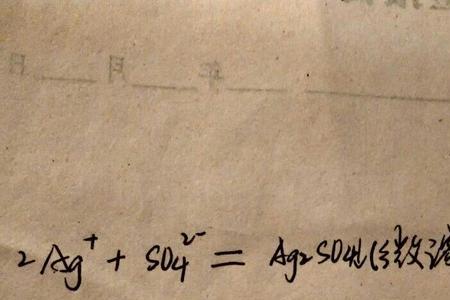 年 月 日
2Ag⁺ + SO₄²⁻ = Ag₂SO₄↓(微溶